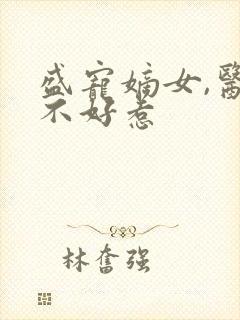 盛寵嫡女,醫
不好惹
林奮强